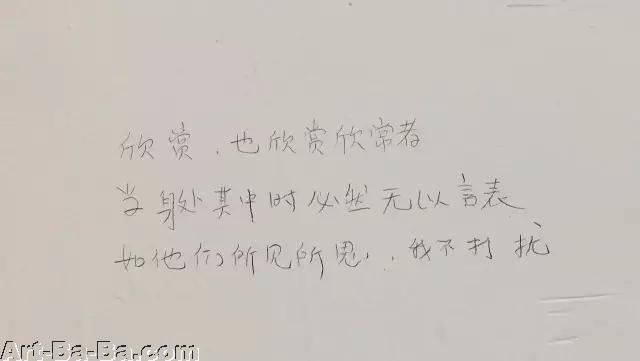 欣赏，也欣赏欣常者
当身处其中时必然无以言表
如他们所见所思，我不打扰
Art-Ba-Ba.com
Art-Ba-Ba.com